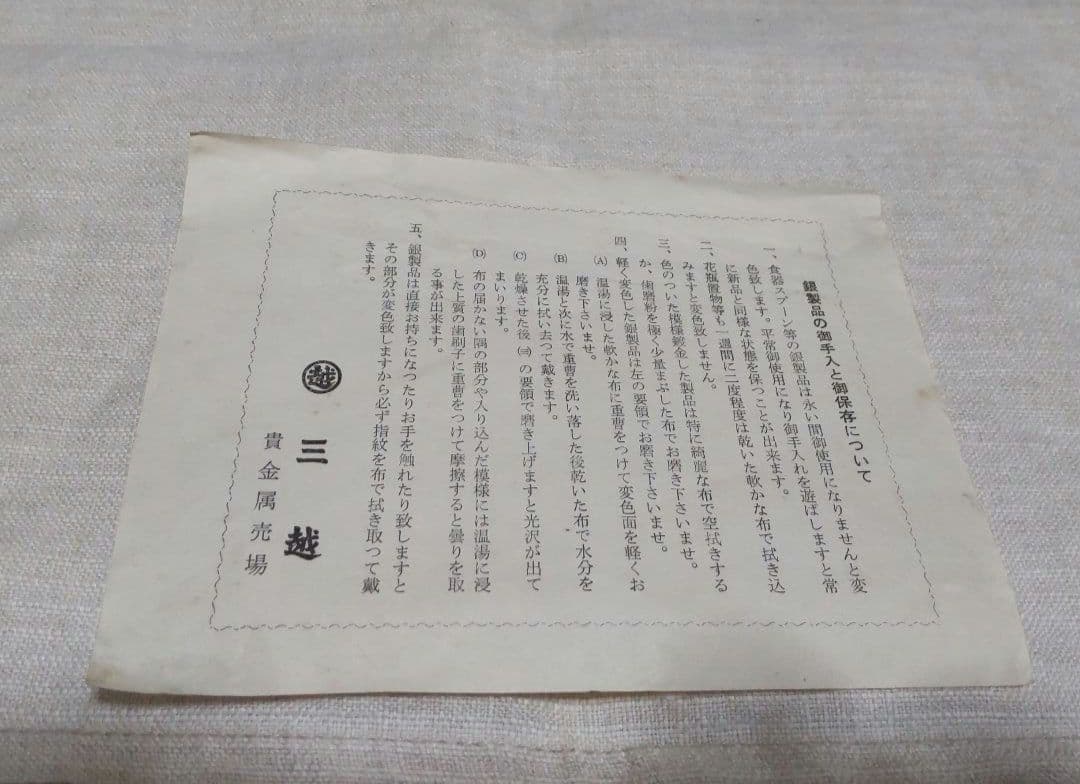 銀製品の御手入と御保存について
一、食器スプーン等の銀製品は永い間御使用になりませんと変
色致します。平常御使用になり御手入れを遊ばしますと常
に新品と同様な状態を保つことが出来ます。
二、花瓶置物等も一週間に二度程度は乾いた軟かな布で拭き込
みますと変色致しません。
三、色のついた模様鍍金した製品は特に綺麗な布で空拭きする
か、歯磨粉を極く少量まぶした布でお磨き下さいませ。
四、軽く変色した銀製品は左の要領でお磨き下さいませ。
(A) 温湯に浸した軟かな布に重曹をつけて変色面を軽くお
磨き下さいませ。
(B) 温湯と次に水で重曹を洗い落した後乾いた布で水分を
充分に拭い去つて戴きます。
(C) 乾燥させた後(三)の要領で磨き上げますと光沢が出て
まいります。
(D) 布の届かない隅の部分や入り込んだ模様には温湯に浸
した上質の歯刷子に重曹をつけて摩擦すると曇りを取
る事が出来ます。
五、銀製品は直接お持ちになつたりお手を触れたり致しますと
その部分が変色致しますから必ず指紋を布で拭き取つて戴
きます。
越 三越
貴金属売場